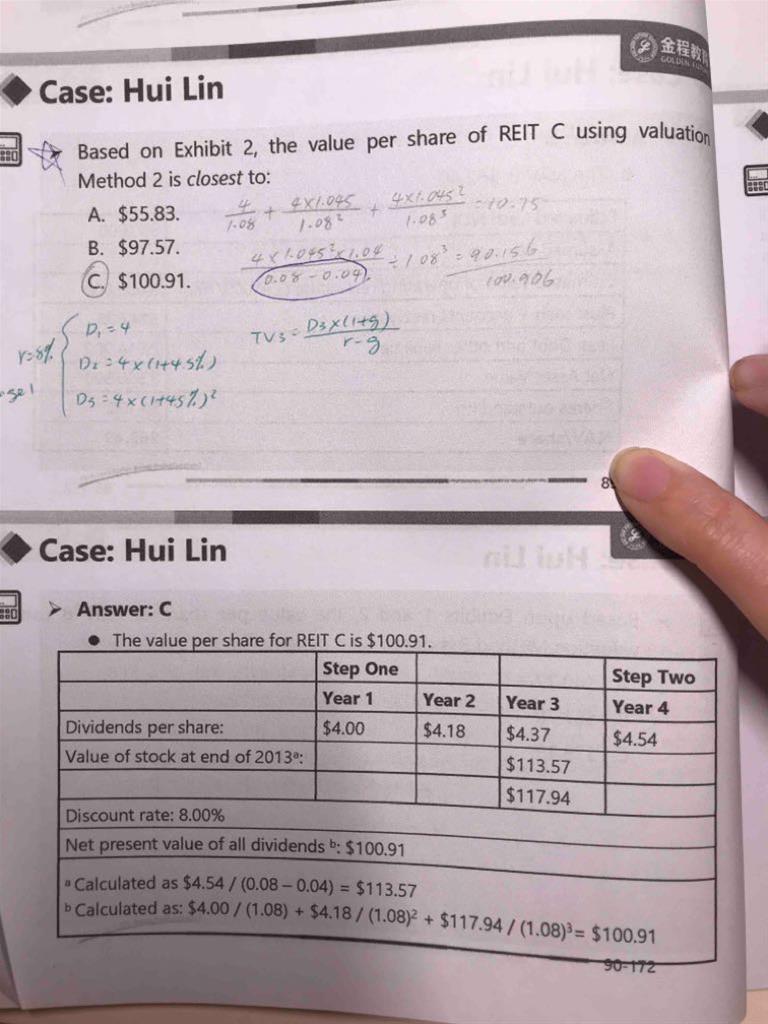 金程教育
GOLDEN FUTURE
Case: Hui Lin
Based on Exhibit 2, the value per share of REIT C using valuation
Method 2 is closest to:
A. $55.83.
B. $97.57.
C. $100.91.
4/1.08 + 4×1.045/1.08² + 4×1.045²/1.08³ = 10.75
4×1.045²×1.04/(0.08-0.04) ÷ 1.08³ = 90.156
100.906
r=8%
D₁=4
D₂=4×(1+4.5%)
D₃=4×(1+4.5%)²
TV₃=D₃×(1+g)/r-g
Case: Hui Lin
Answer: C
The value per share for REIT C is $100.91.
Step One Step Two
Year 1 Year 2 Year 3 Year 4
Dividends per share: $4.00 $4.18 $4.37 $4.54
Value of stock at end of 2013ᵃ: $113.57
$117.94
Discount rate: 8.00%
Net present value of all dividends ᵇ: $100.91
ᵃ Calculated as $4.54 / (0.08 – 0.04) = $113.57
ᵇ Calculated as: $4.00 / (1.08) + $4.18 / (1.08)² + $117.94 / (1.08)³= $100.91
90-172